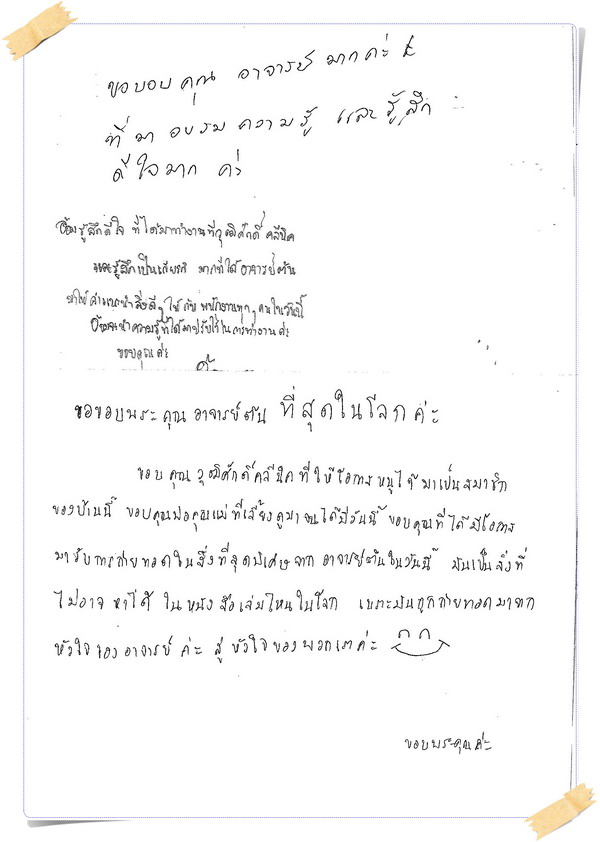 ขอบอบคุณ อาจารย์ มากค่ะ
ที่ มา อบรม ความ รู้ และ รู้สึก
ดีใจมาก ค่ะ
อ้อมรู้สึกดีใจ ที่ได้มาทำงานที่วุฒิศักดิ์ คลินิค
และรู้สึกเป็นเกียรติ มากที่ได้อาจารย์ตัน
มาให้คำแนะนำสิ่งดีๆ ให้ กับ พนักงานทุกๆ คนในวันนี้
อ้อมจะนำความรู้ที่ได้มาปรับใช้ในการทำงานค่ะ
ขอบคุณค่ะ
ขอขอบพระคุณ อาจารย์ตัน ที่สุดในโลกค่ะ
ขอบ คุณ วุฒิศักดิ์คลินิค ที่ให้โอกาส หนูได้ มาเป็นสมาชิก
ของบ้านนี้ ขอบคุณพ่อคุณแม่ ที่เลี้ยงดูมาจนได้มีวันนี้ ขอบคุณที่ได้มีโอกาส
มารับการถ่ายทอดในสิ่งที่สุดพิเศษจาก อาจารย์ตันในวันนี้ มันเป็นสิ่งที่
ไม่อาจ หาได้ ในหนังสือเล่มไหนในโลก เพราะมันถูกถ่ายทอดมาจาก
หัวใจของอาจารย์ ค่ะ สู่ หัวใจของพวกเราค่ะ
ขอบพระคุณค่ะ